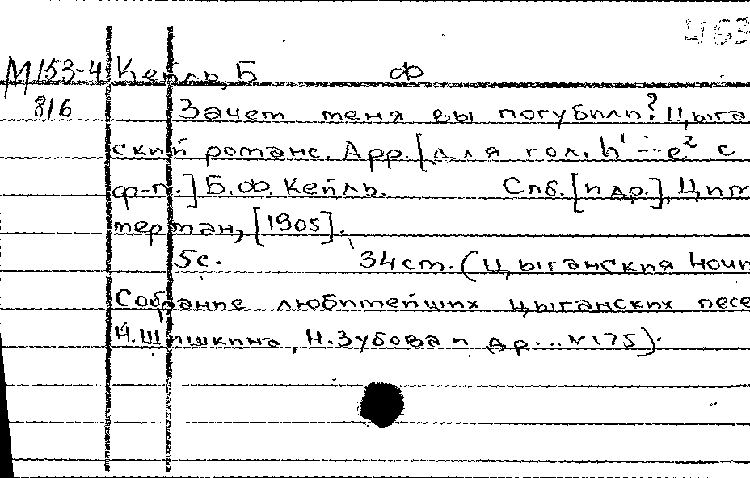 463
М153-4 Кейль, Б Ф
816 Зачем меня вы погубили? Цыга
ский романс. Арр. [для гол. h¹–e² с
ф-п.] Б.Ф. Кейль. Спб. [и др.], Цим
мерман, [1905].
5с. 34 ст. (Цыганския ночи
Собрание любитейших цыганских песе
Н. Шишкина, Н. Зубова и др... N175).